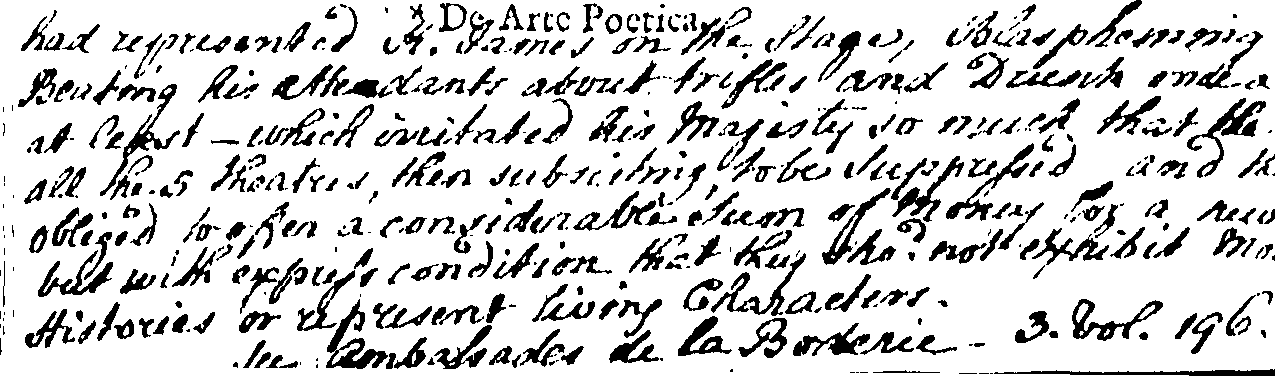 * De Arte Poetica
had represented K. James on the Stage, Blaspheming
Beating his attendants about trifles and Drunk once a
at least – which irritated his Majesty so much that the
all the 5 theatres, then subsisting, to be Suppressed and th
obliged to offer a considerable Sum of Money for a new
but with express condition that they shod. not exhibit mo
Histories or represent living Characters.
See Ambassades de la Boderie – 3. Vol. 196.